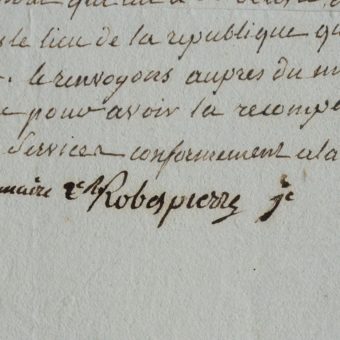 le lieu de la republique qu
le renvoyons aupres du m
pour avoir la recompe
Services conformement a la
Robespierre je